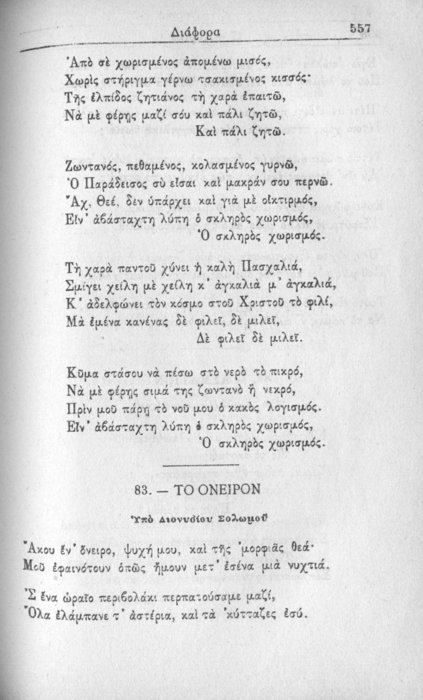 Διάφορα
557
Ἀπὸ σὲ χωρισμένος ἀπομένω μισός,
Χωρὶς στήριγμα γέρνω τσακισμένος κισσός·
Τῆς ἐλπίδος ζητιάνος τὴ χαρὰ ἐπαιτῶ,
Νὰ μὲ φέρῃς μαζί σου καὶ πάλι ζητῶ,
Καὶ πάλι ζητῶ.
Ζωντανός, πεθαμένος, κολασμένος γυρνῶ,
Ὁ Παράδεισος σὺ εἶσαι καὶ μακράν σου περνῶ.
Ἄχ, Θεέ, δεν ὑπάρχει καὶ γιὰ μὲ οἰκτιρμός,
Εἶν' ἀβάσταχτη λύπη ὁ σκληρὸς χωρισμός,
Ὁ σκληρὸς χωρισμός.
Τὴ χαρὰ παντοῦ χύνει ἡ καλὴ Πασχαλιά,
Σμίγει χείλη μὲ χείλη κ' ἀγκαλιὰ μ' ἀγκαλιά,
Κ' ἀδελφώνει τὸν κόσμο στοῦ Χριστοῦ τὸ φιλί,
Μὰ ἐμένα κανένας δὲ φιλεῖ, δὲ μιλεῖ,
Δὲ φιλεῖ δὲ μιλεῖ.
Κῦμα στάσου νὰ πέσω στὸ νερὸ τὸ πικρό,
Νὰ μὲ φέρῃς σιμά της ζωντανὸ ἢ νεκρό,
Πρὶν μοῦ πάρῃ τὸ νοῦ μου ὁ κακὸς λογισμός.
Εἶν' ἀβάσταχτη λύπη ὁ σκληρὸς χωρισμός,
Ὁ σκληρὸς χωρισμός.
83. — ΤΟ ΟΝΕΙΡΟΝ
Ὑπὸ Διονυσίου Σολωμοῦ
Ἄκου ἕν' ὄνειρο, ψυχή μου, καὶ τῆς ὀμορφιᾶς θεά·
Μοῦ ἐφαινότουν ὁπῶς ἤμουν μετ' ἐσένα μιὰ νυχτιά.
Σ ἕνα ὡραῖο περιβολάκι περπατούσαμε μαζί,
Ὅλα ἐλάμπανε τ' ἀστέρια, καὶ τὰ κύτταζες ἐσύ.